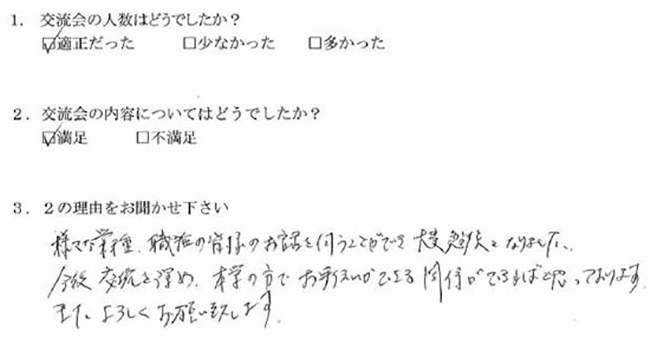 1. 交流会の人数はどうでしたか?
☑適正だった □少なかった □多かった
2. 交流会の内容についてはどうでしたか?
☑満足 □不満足
3. 2の理由をお聞かせ下さい
様々な業種、職種の皆様のお話を伺うことができ大変勉強となりました。
今後交流を深め、本業の方でお手伝いができる関係ができればと思っております。
また、よろしくお願い致します。